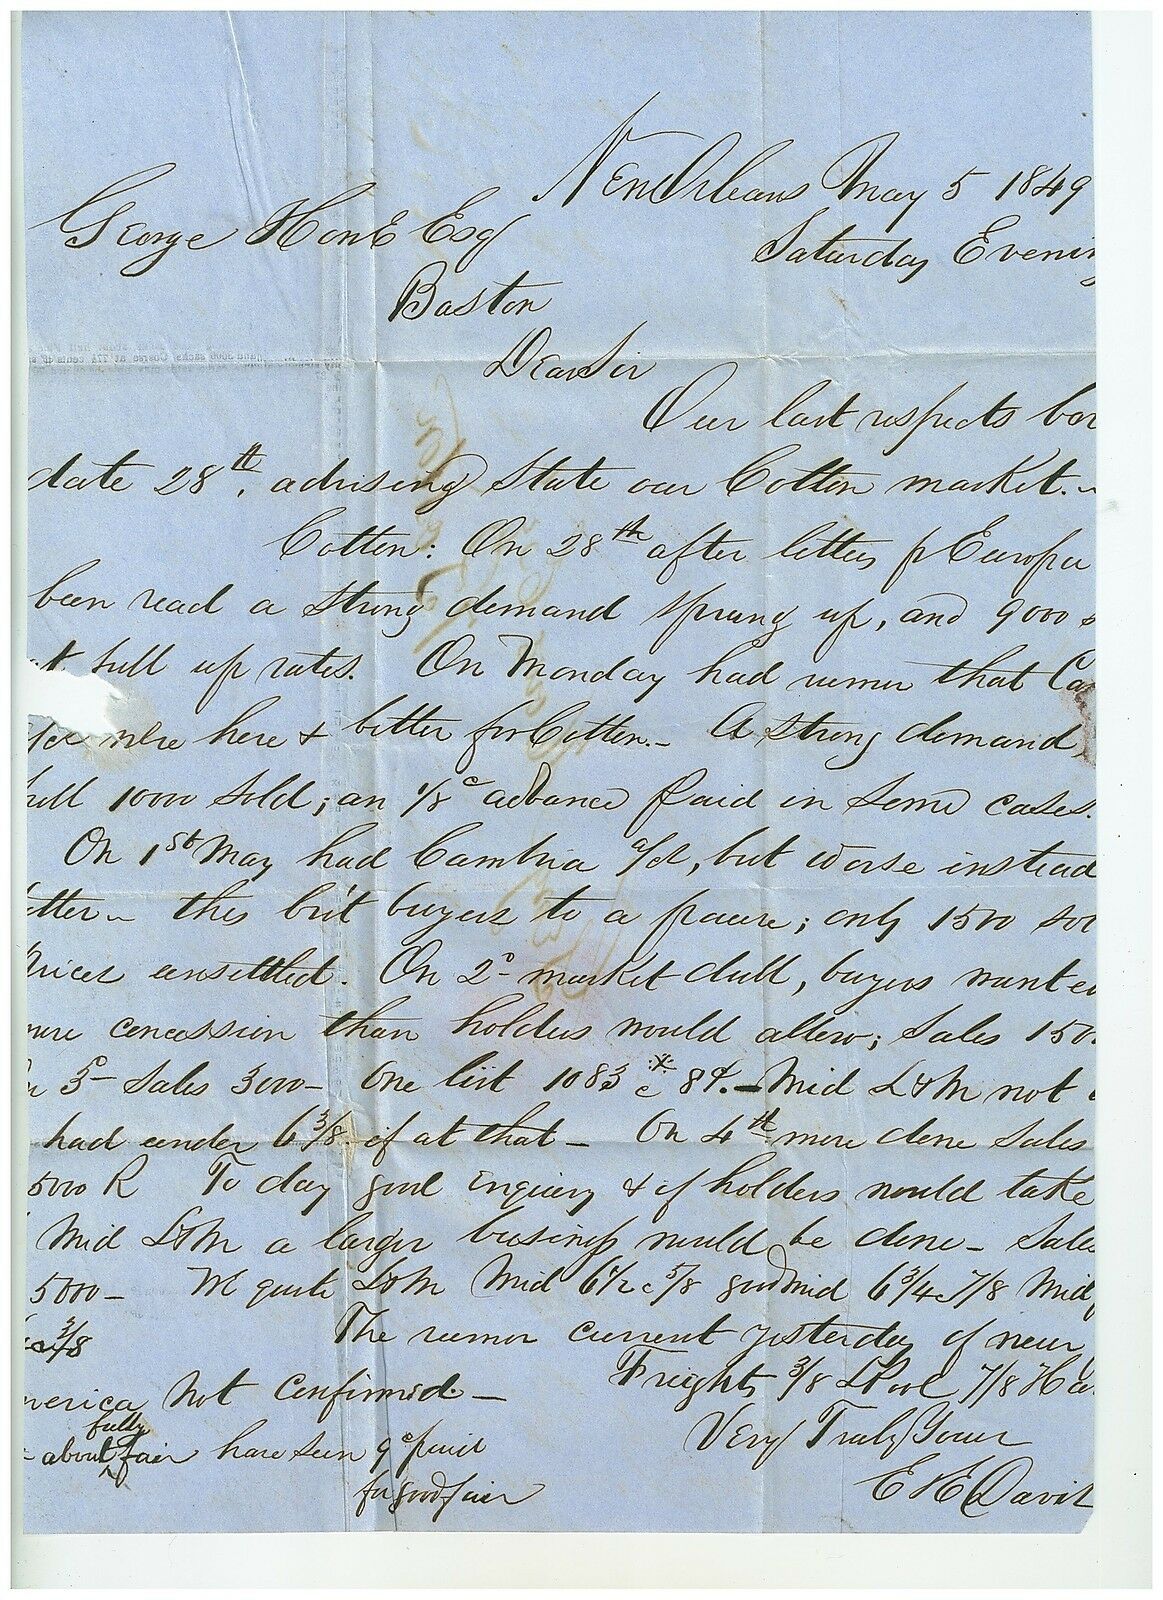 New Orleans May 5 1849
George Hone Esq Saturday Evenin
Boston
Dear Sir
Our last respects bor
date 28th, advising state our Cotton market.
Cotton: On 28th after letters p Europa
been read a strong demand sprung up, and 9000 s
at full up rates. On Monday had rumor that Ca
were here & better for Cotton. A strong demand,
full 10000 sold; an 1/8c advance paid in some cases.
On 1st May had Cambria a/ct, but worse instead
etter - this bro't buyers to a pause; only 1500 sol
Prices unsettled. On 2d market dull, buyers wanted
more concession than holders would allow; sales 150
On 3d sales 3000 - One list 1083 * c 8¢. - Mid L&M not
had under 6 3/8 - if at that - On 4th more done sales
5000 R To day good enquiry & if holders would take
Mid L&M a larger business would be done - Sale
5000 - We quote L&M Mid 6 1/2 c 5/8 good mid 6 3/4 c 7/8 Mid
3/8 The rumor current yesterday of new
Freights 3/8 LPool 7/8 Ha
merica not confirmed. -
fully
about fair have seen 9c paid
for good fair
Very Truly Your
E H Davis